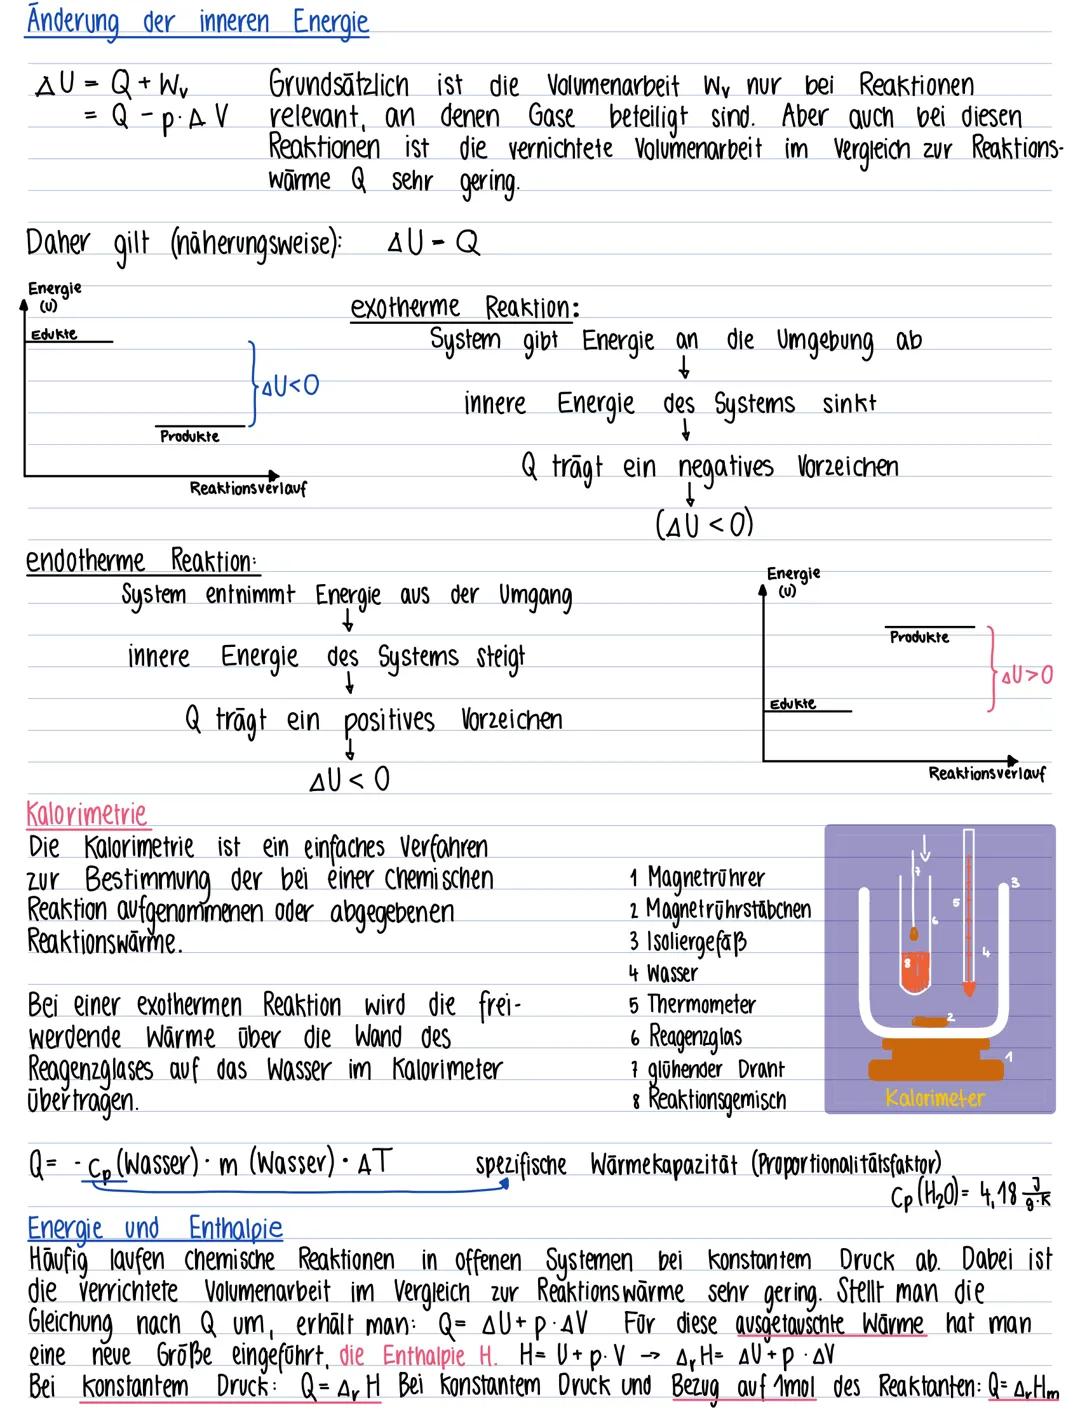 Änderung der inneren Energie
ΔU = Q + Wv
= Q - p · Δ V
Grundsätzlich ist die Volumenarbeit Wv nur bei Reaktionen
relevant, an denen Gase beteiligt sind. Aber auch bei diesen
Reaktionen ist die vernichtete Volumenarbeit im Vergleich zur Reaktions-
wärme Q sehr gering.
Daher gilt (näherungsweise): ΔU = Q
Energie
(U)
Edukte
ΔU<0
Produkte
Reaktionsverlauf
exotherme Reaktion:
System gibt Energie an die Umgebung ab
↓
innere Energie des Systems sinkt
↓
Q trägt ein negatives Vorzeichen
↓
(ΔU < 0)
endotherme Reaktion:
System entnimmt Energie aus der Umgang
↓
innere Energie des Systems steigt
↓
Q trägt ein positives Vorzeichen
↓
ΔU < 0
Energie
(U)
Produkte
ΔU>0
Edukte
Reaktionsverlauf
Kalorimetrie
Die Kalorimetrie ist ein einfaches Verfahren
zur Bestimmung der bei einer chemischen
Reaktion aufgenommenen oder abgegebenen
Reaktionswärme.
Bei einer exothermen Reaktion wird die frei-
werdende Wärme über die Wand des
Reagenzglases auf das Wasser im Kalorimeter
übertragen.
1 Magnetrührer
2 Magnetrührstäbchen
3 Isoliergefäß
4 Wasser
5 Thermometer
6 Reagenzglas
7 glühender Draht
8 Reaktionsgemisch
7
3
5
6
4
8
2
1
Kalorimeter
Q = - cp (Wasser) · m (Wasser) · ΔT
spezifische Wärmekapazität (Proportionalitätsfaktor)
Cp (H₂O) = 4,18 J/g·K
Energie und Enthalpie
Häufig laufen chemische Reaktionen in offenen Systemen bei konstantem Druck ab. Dabei ist
die verrichtete Volumenarbeit im Vergleich zur Reaktionswärme sehr gering. Stellt man die
Gleichung nach Q um, erhält man: Q = ΔU + p · ΔV Für diese ausgetauschte Wärme hat man
eine neue Größe eingeführt, die Enthalpie H. H = U + p · V → ΔrH = ΔU + p · ΔV
Bei konstantem Druck: Q = Δr H Bei konstantem Druck und Bezug auf 1mol des Reaktanten: Q = ΔrHm